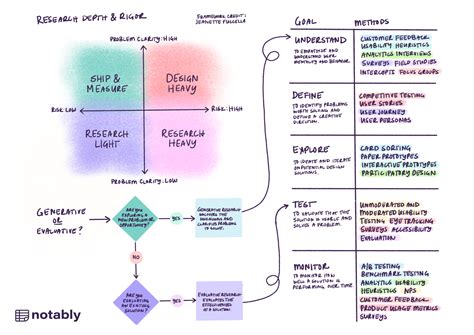 RESEARCH DEPTH & RIGOR
FRAMEWORK CREDIT:
JEANETTE FUCCELLA
PROBLEM CLARITY: HIGH
SHIP &
MEASURE
DESIGN
HEAVY
RISK: LOW
RISK: HIGH
RESEARCH
LIGHT
RESEARCH
HEAVY
PROBLEM CLARITY: LOW
GENERATIVE OR
EVALUATIVE?
ARE YOU
EXPLORING A
NEW PROBLEM OR
OPPORTUNITY?
YES
GENERATIVE RESEARCH
UNCOVERS THE
UNKNOWNS AND
CLARIFIES PROBLEMS
TO SOLVE.
NO
ARE YOU
EVALUATING AN
EXISTING
SOLUTION?
YES
EVALUATIVE RESEARCH
EVALUATES THE
EFFECTIVENESS
OF A SOLUTION
notably
GOAL
METHODS
UNDERSTAND
TO EMPATHIZE AND
UNDERSTAND USER
MENTALITY AND BEHAVIOR.
CUSTOMER FEEDBACK
USABILITY HEURISTICS
ANALYTICS INTERVIEWS
SURVEYS FIELD STUDIES
INTERCEPTS FOCUS GROUPS
DEFINE
TO IDENTIFY PROBLEMS
WORTH SOLVING AND
DEFINE A CREATIVE
DIRECTION.
COMPETITIVE TESTING
USER STORIES
USER JOURNEY
USER PERSONAS
EXPLORE
TO IDEATE AND ITERATE
ON POTENTIAL DESIGN
SOLUTIONS.
CARD SORTING
PAPER PROTOTYPES
INTERACTIVE PROTOTYPES
PARTICIPATORY DESIGN
TEST
TO VALIDATE THAT THE
SOLUTION IS USABLE AND
SOLVES A PROBLEM.
UNMODERATED AND
MODERATED USABILITY
TESTING EYE TRACKING
SURVEYS ACCESSIBILITY
EVALUATION
MONITOR
TO MONITOR HOW
WELL A SOLUTION IS
PERFORMING OVER TIME.
A/B TESTING
BENCHMARK TESTING
ANALYTICS USABILITY
HEURISTICS NPS
CUSTOMER FEEDBACK
PRODUCT USAGE METRICS
SURVEYS